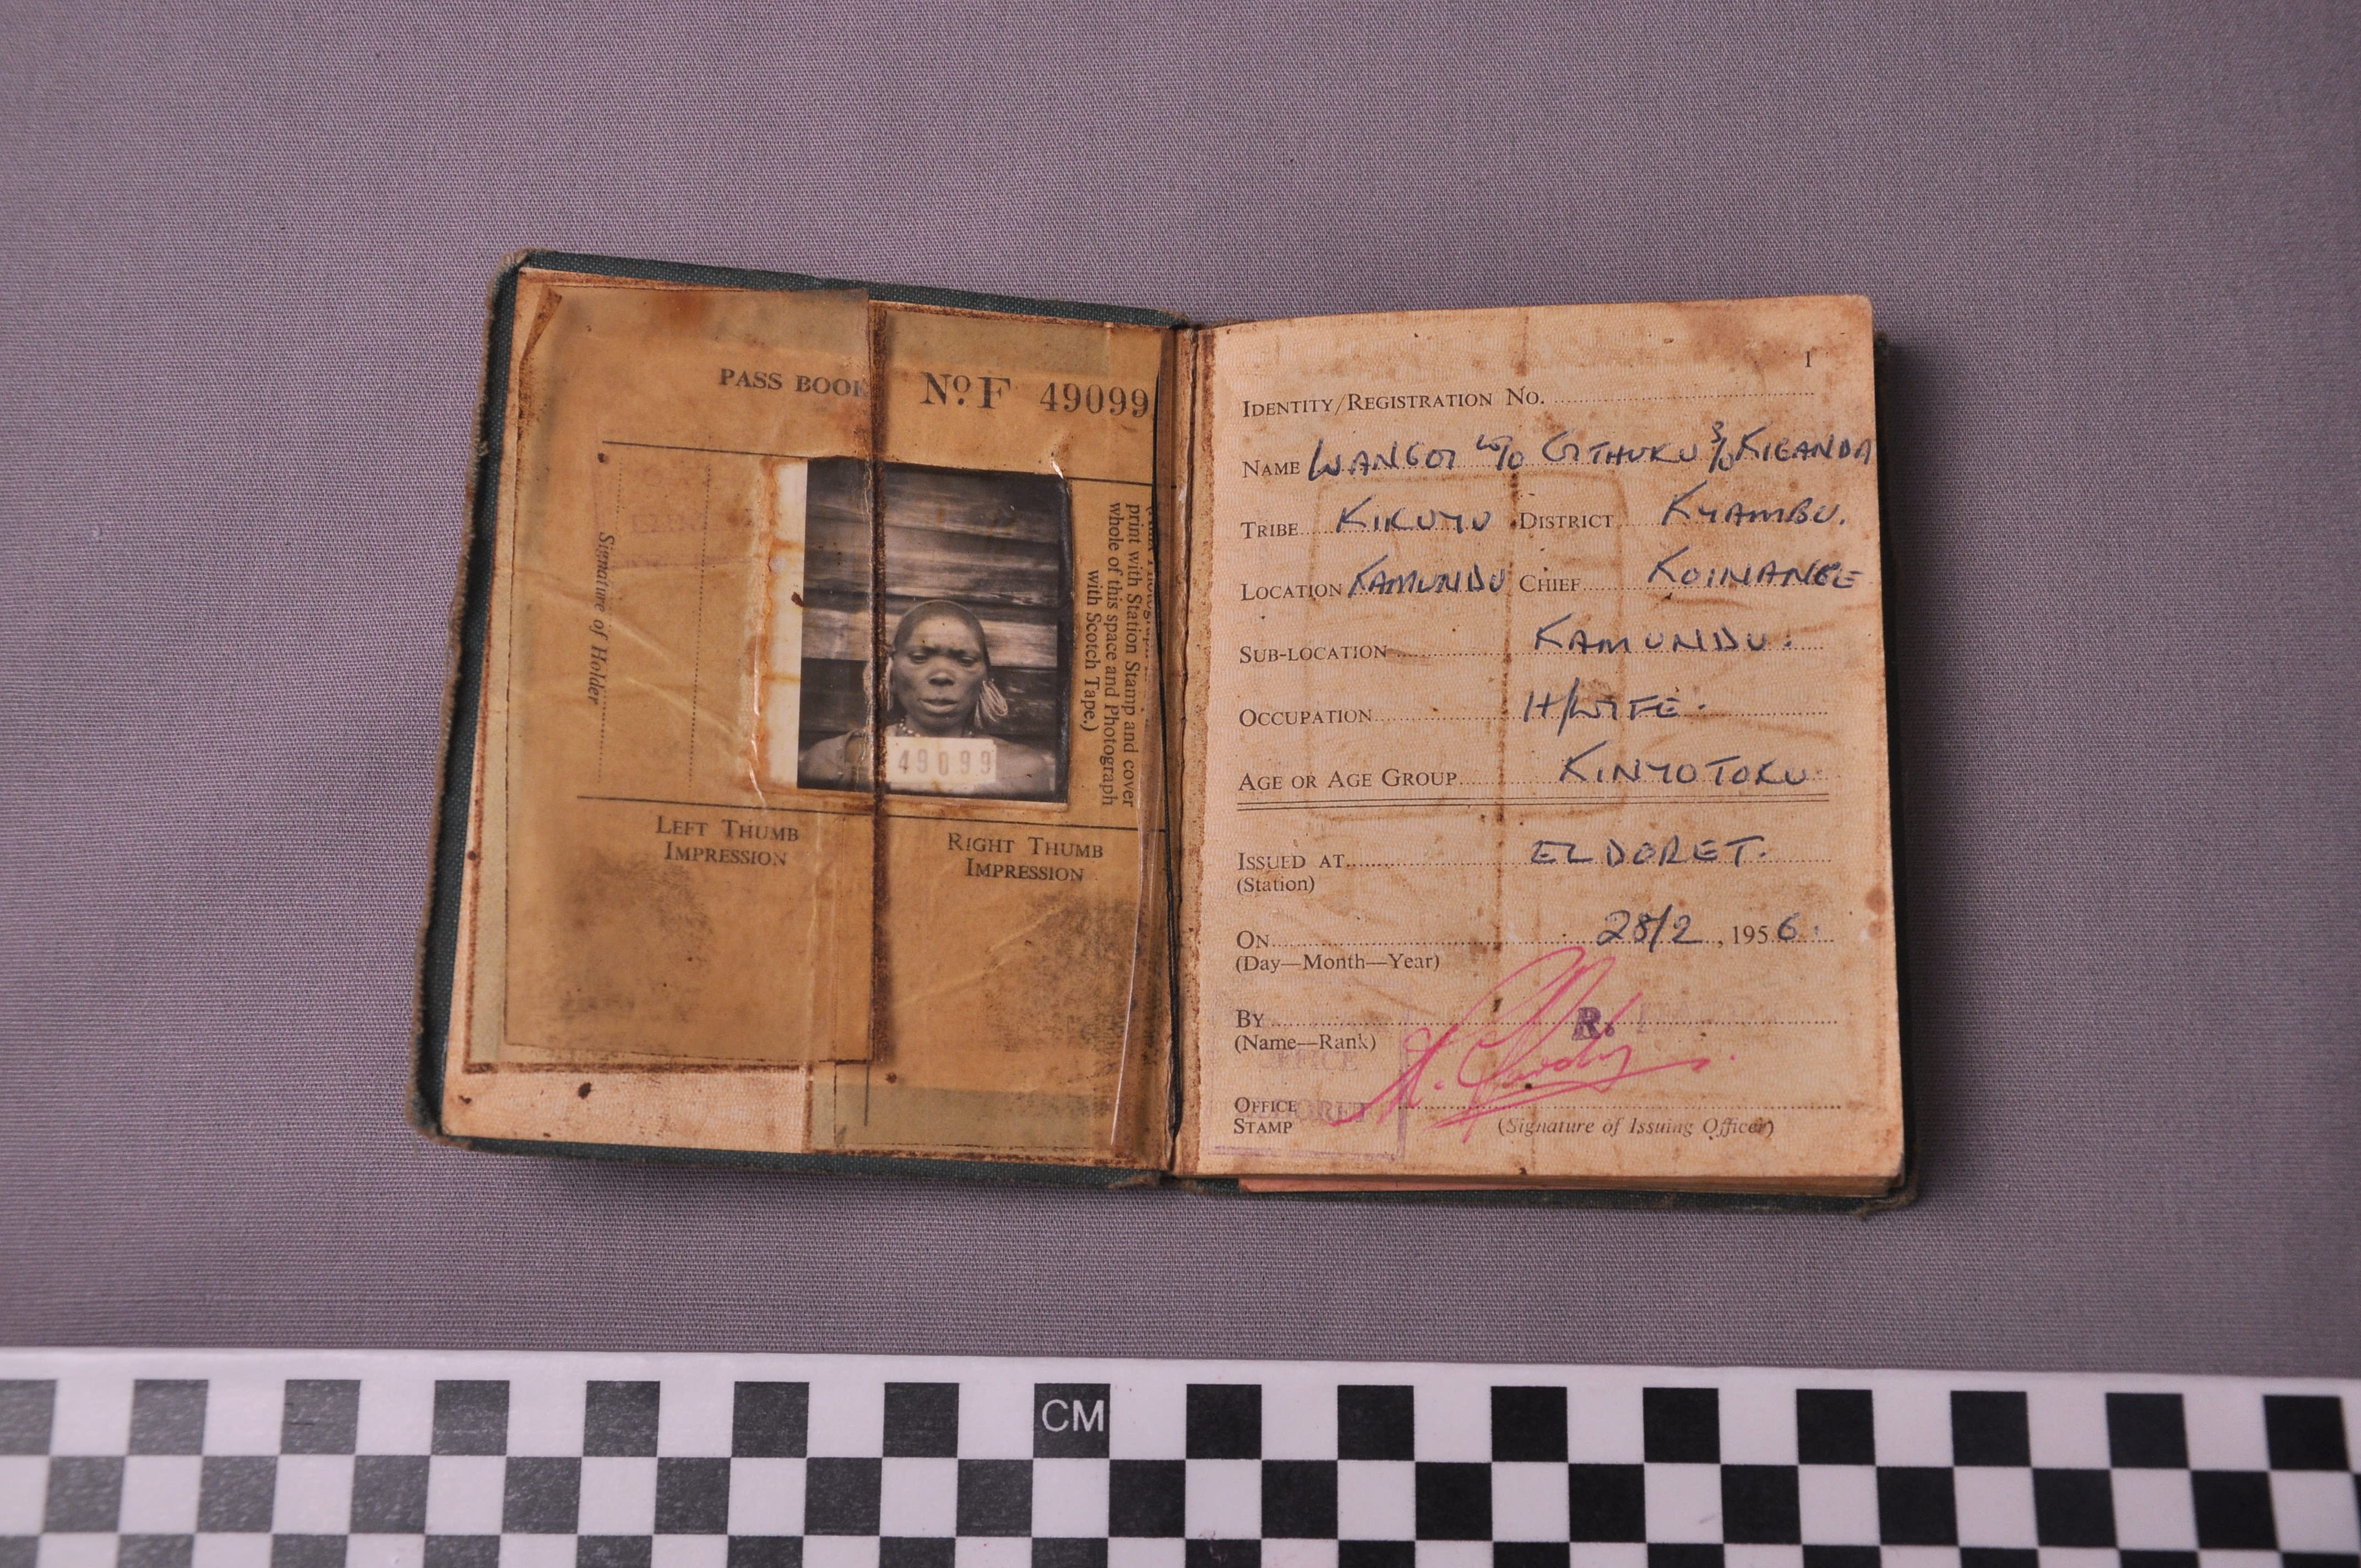 PASS BOOK No. F 49099
Signature of Holder
print with Station Stamp and cover
whole of this space and Photograph
with Scotch Tape.)
49099
LEFT THUMB
IMPRESSION
RIGHT THUMB
IMPRESSION
1
IDENTITY/REGISTRATION No.
NAME WANGOI W/O GITHUKU S/O KIGANDA
TRIBE KIKUYU DISTRICT KYAMBU.
LOCATION KAMUNDU CHIEF KOINANGE
SUB-LOCATION KAMUNDU.
OCCUPATION H/WIFE.
AGE OR AGE GROUP KINYOTOKU
ISSUED AT ELDORET.
(Station)
ON 28/2, 1956.
(Day—Month—Year)
BY R.
(Name—Rank)
OFFICE
STAMP
(Signature of Issuing Officer)
CM